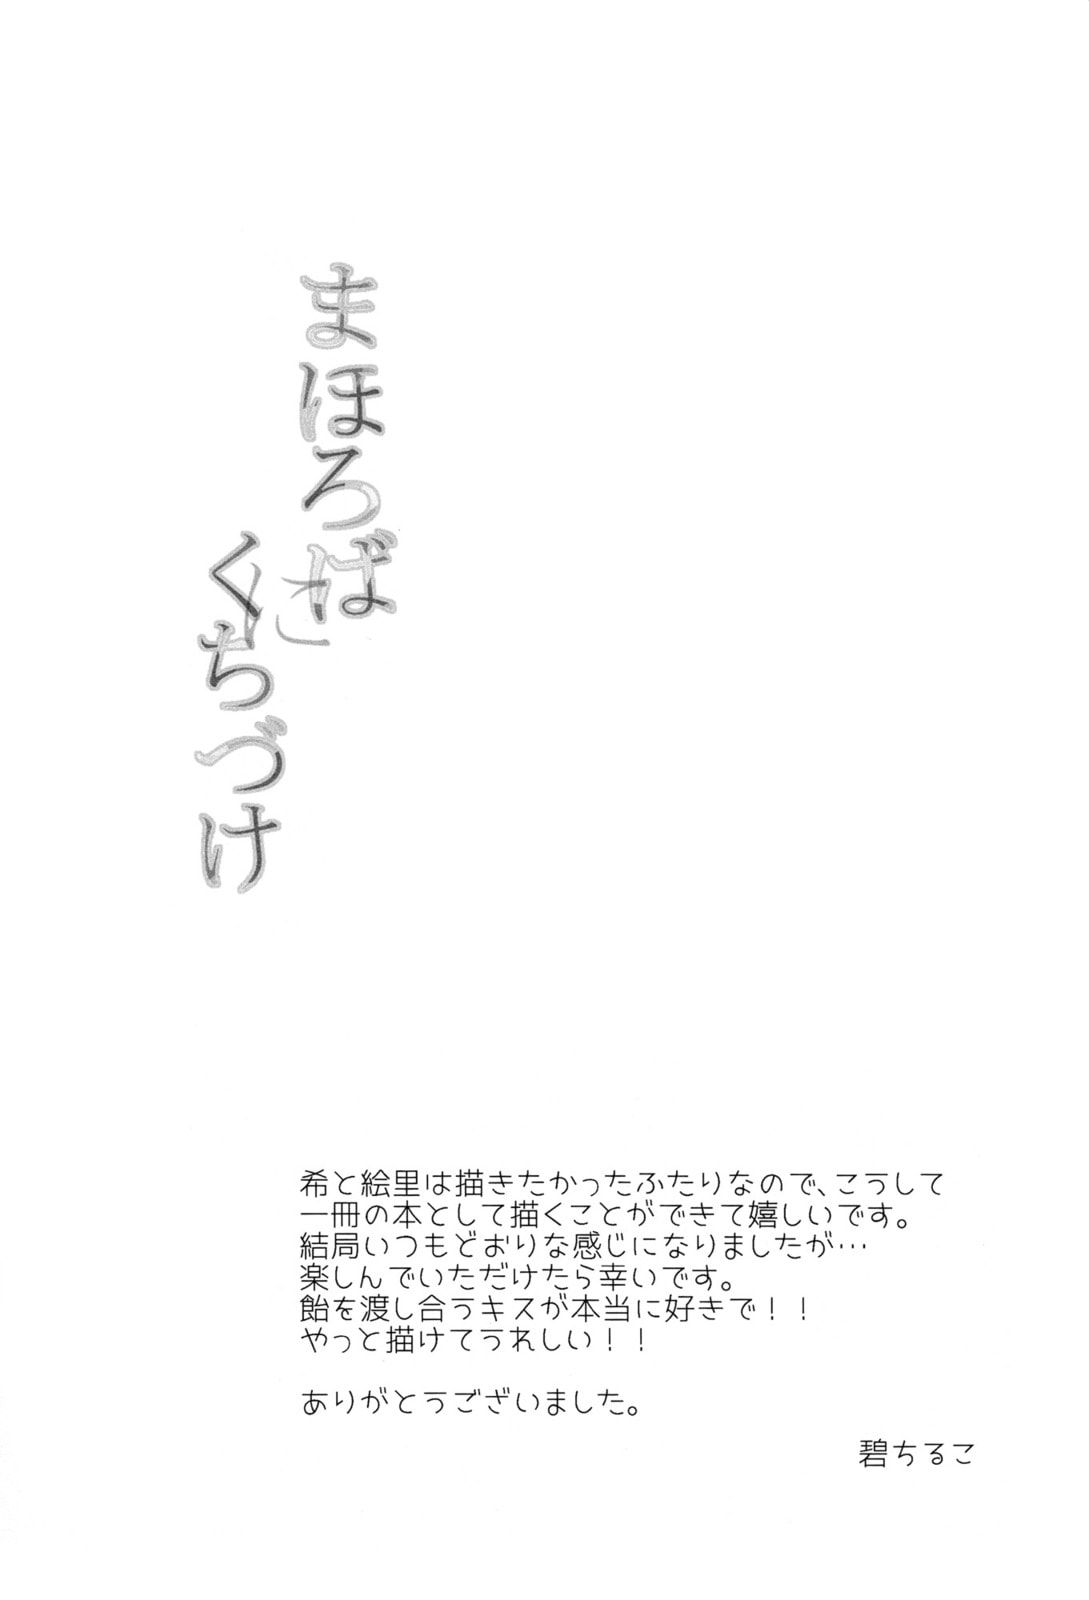 まほろば
に
くちづけ
希と絵里は描きたかったふたりなので、こうして
一冊の本として描くことができて嬉しいです。
結局いつもどおりな感じになりましたが…
楽しんでいただけたら幸いです。
飴を渡し合うキスが本当に好きで！！
やっと描けてうれしい！！
ありがとうございました。
碧ちるこ